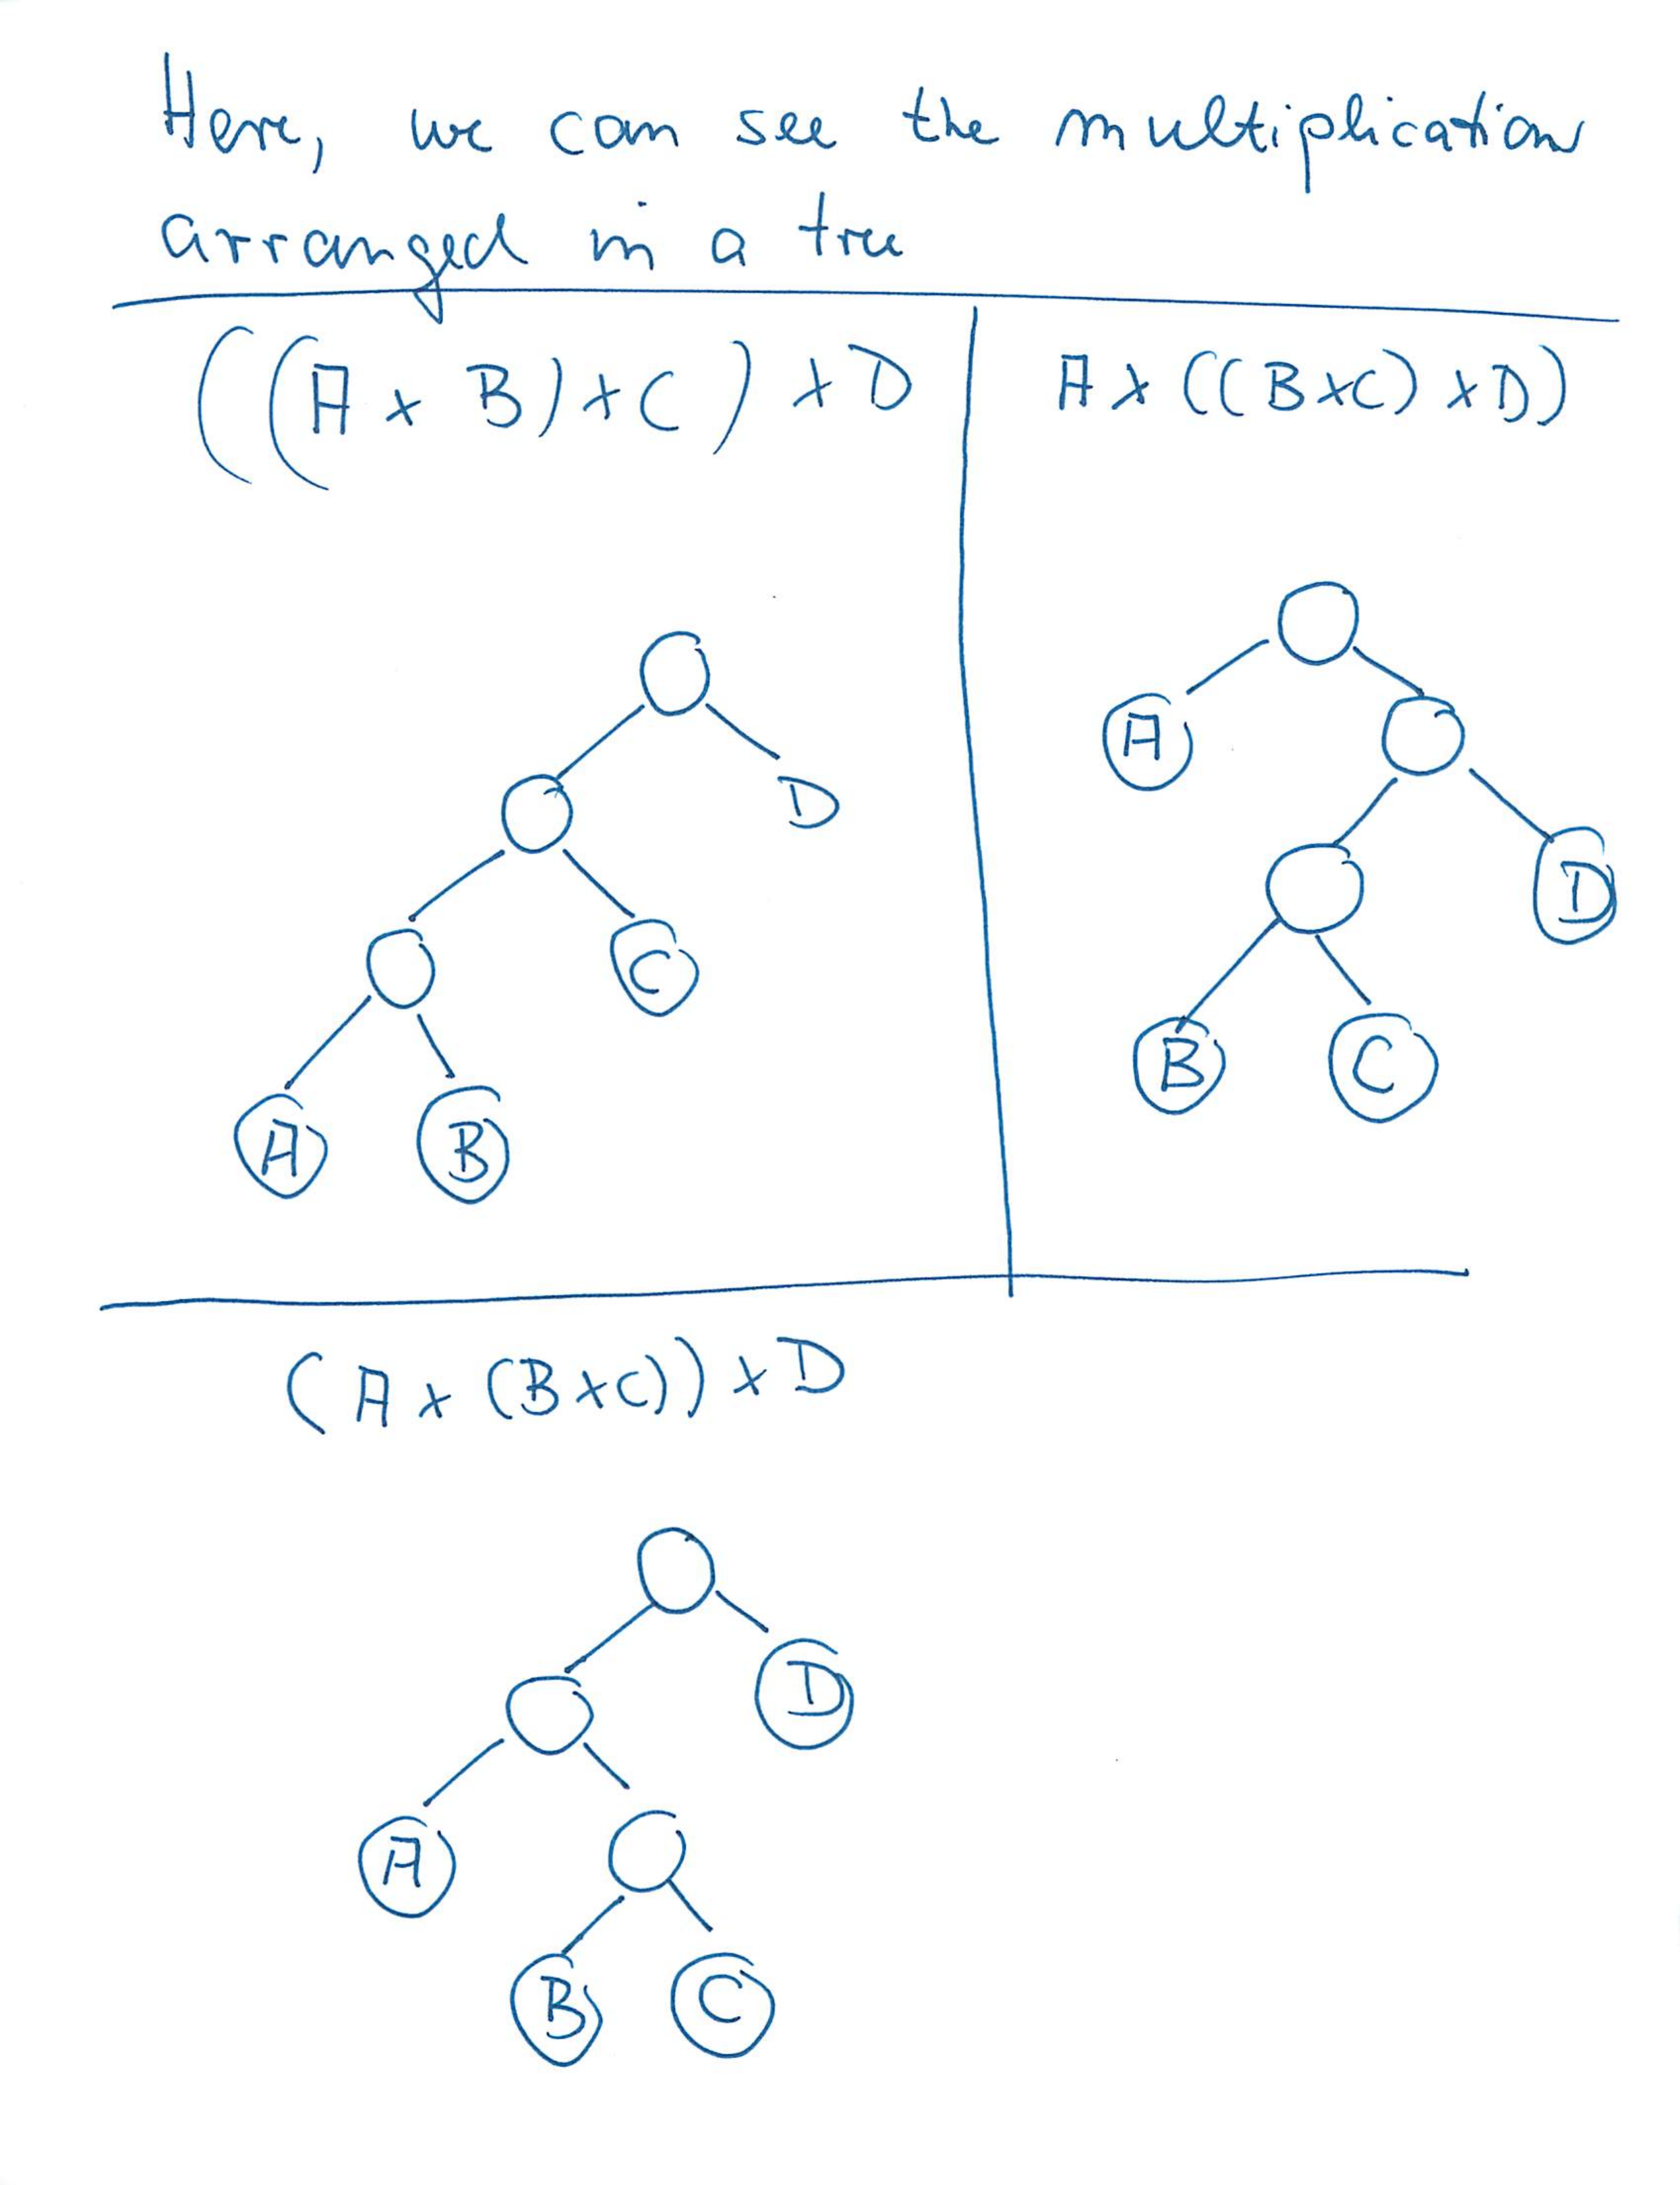 Here, we can see the multiplication
arranged in a tree
((A × B) × C) × D
A × ((B×C) × D)
D
C
A B
A
D
B C
(A × (B×C)) × D
D
A
B C